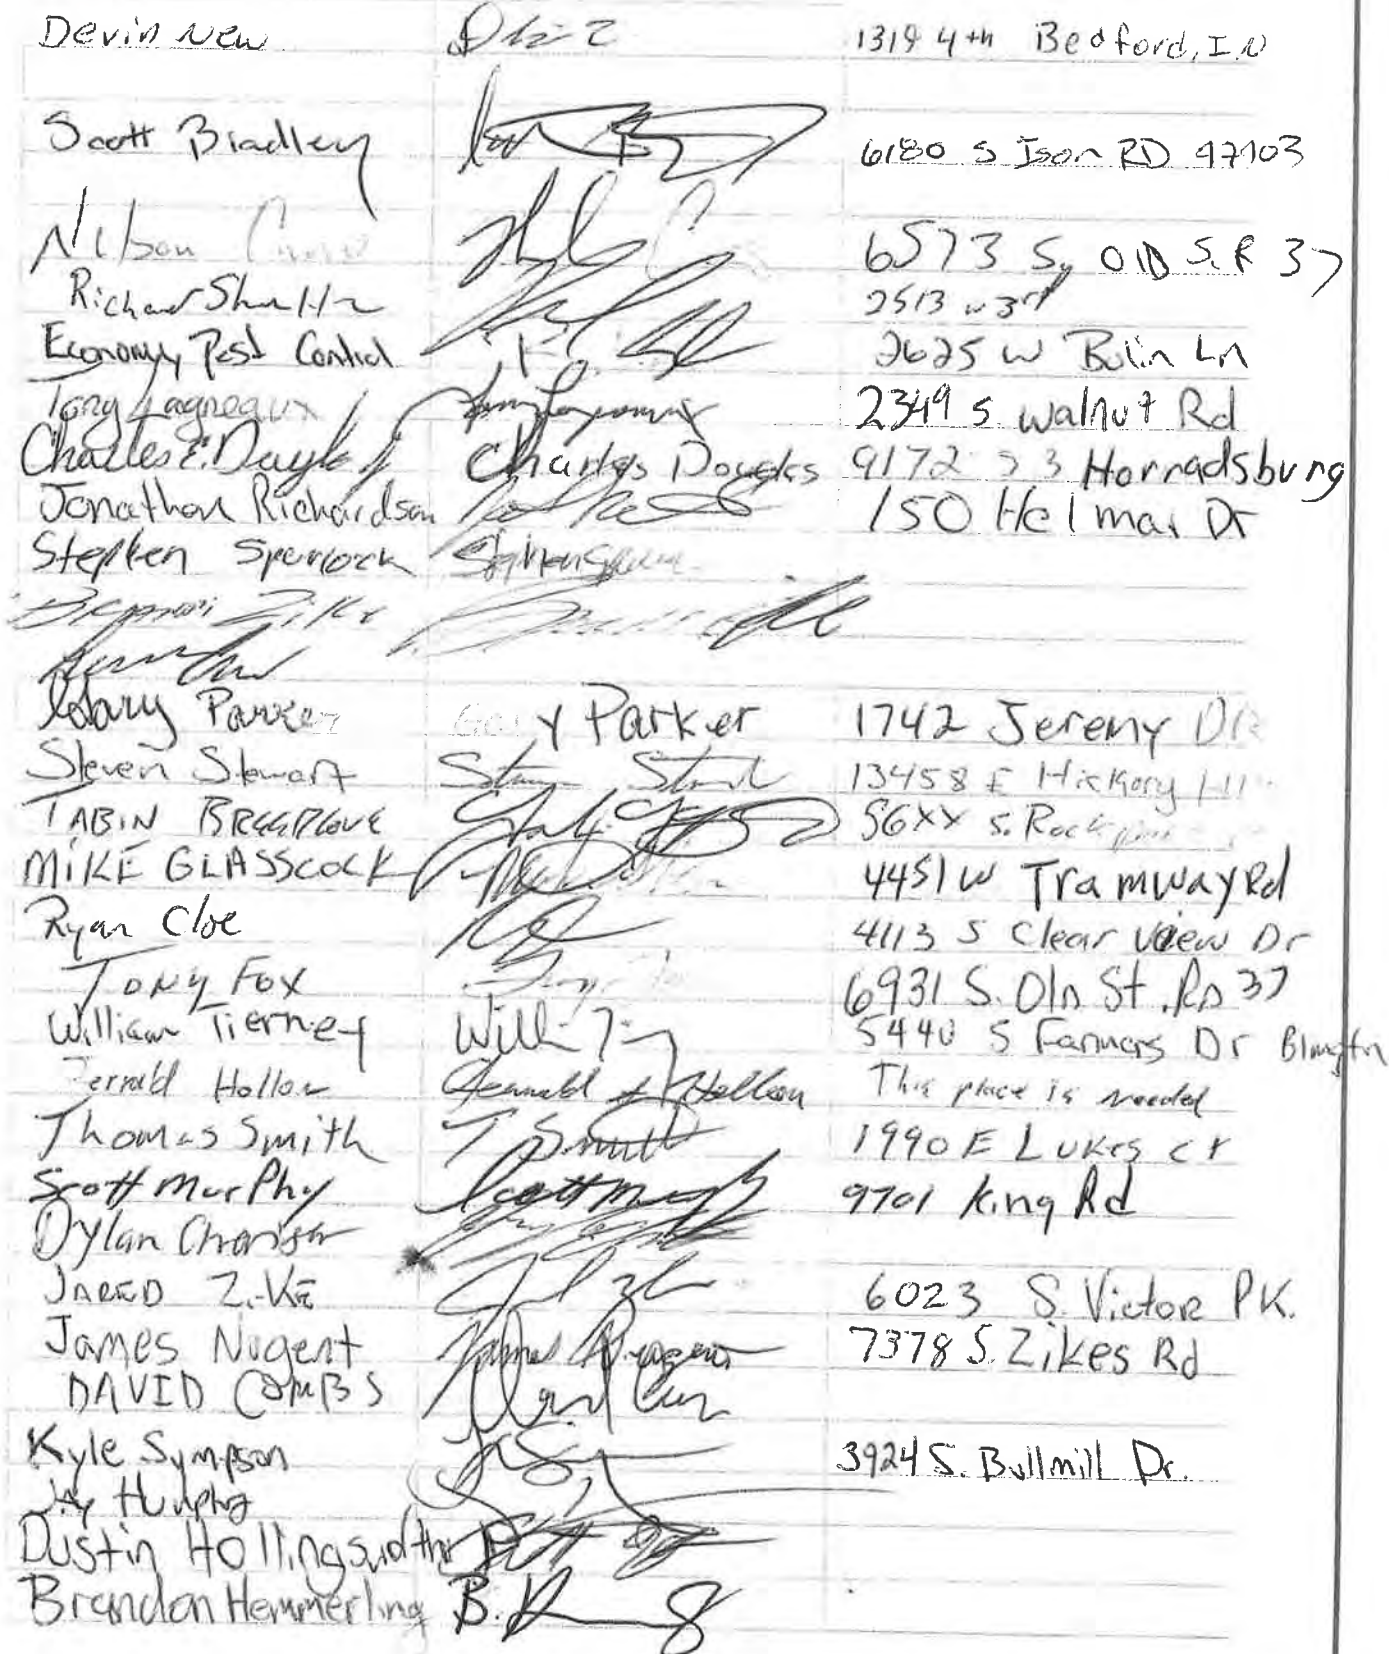 Devin New 1319 4th Bedford, IN
Scott Bradley 6180 S Ison RD 47403
6573 S. OlD S. R 37
Richard Shultz 2513 w 3rd
Economy Pest Control 2625 W Bolin Ln
Tony Lagneaux 2349 S. Walnut Rd
Charles E. Charles Douglas 9172 Harrodsburg
Jonathon Richardson 150 Helmar Dr
Stephen Spurlock
Zike
Gary Parker Gary Parker 1742 Jeremy DR
Steven Stewart 13458 E Hickory
TABIN BREEDLOVE 56XX S. Rock
MIKE GLASSCOCK 4451 W Tramway Rd
Ryan Cloe 4113 S Clear View Dr
TONY FOX 6931 S. Old St. RD 37
William Tierney 5440 S Farmers Dr Blmgtn
Jerrald Hollon This place is needed
Thomas Smith T Smith 1990 E Lukes ct
Scott Murphy Scott Murphy 9701 King Rd
Dylan
JARED ZIKE 6023 S. Victor PK.
James Nugent James Nugent 7378 S. Zikes Rd
DAVID COMBS
Kyle Sympson 3924 S. Bullmill Dr.
Dustin Hollingsworth
Brandon Hemmerling B.